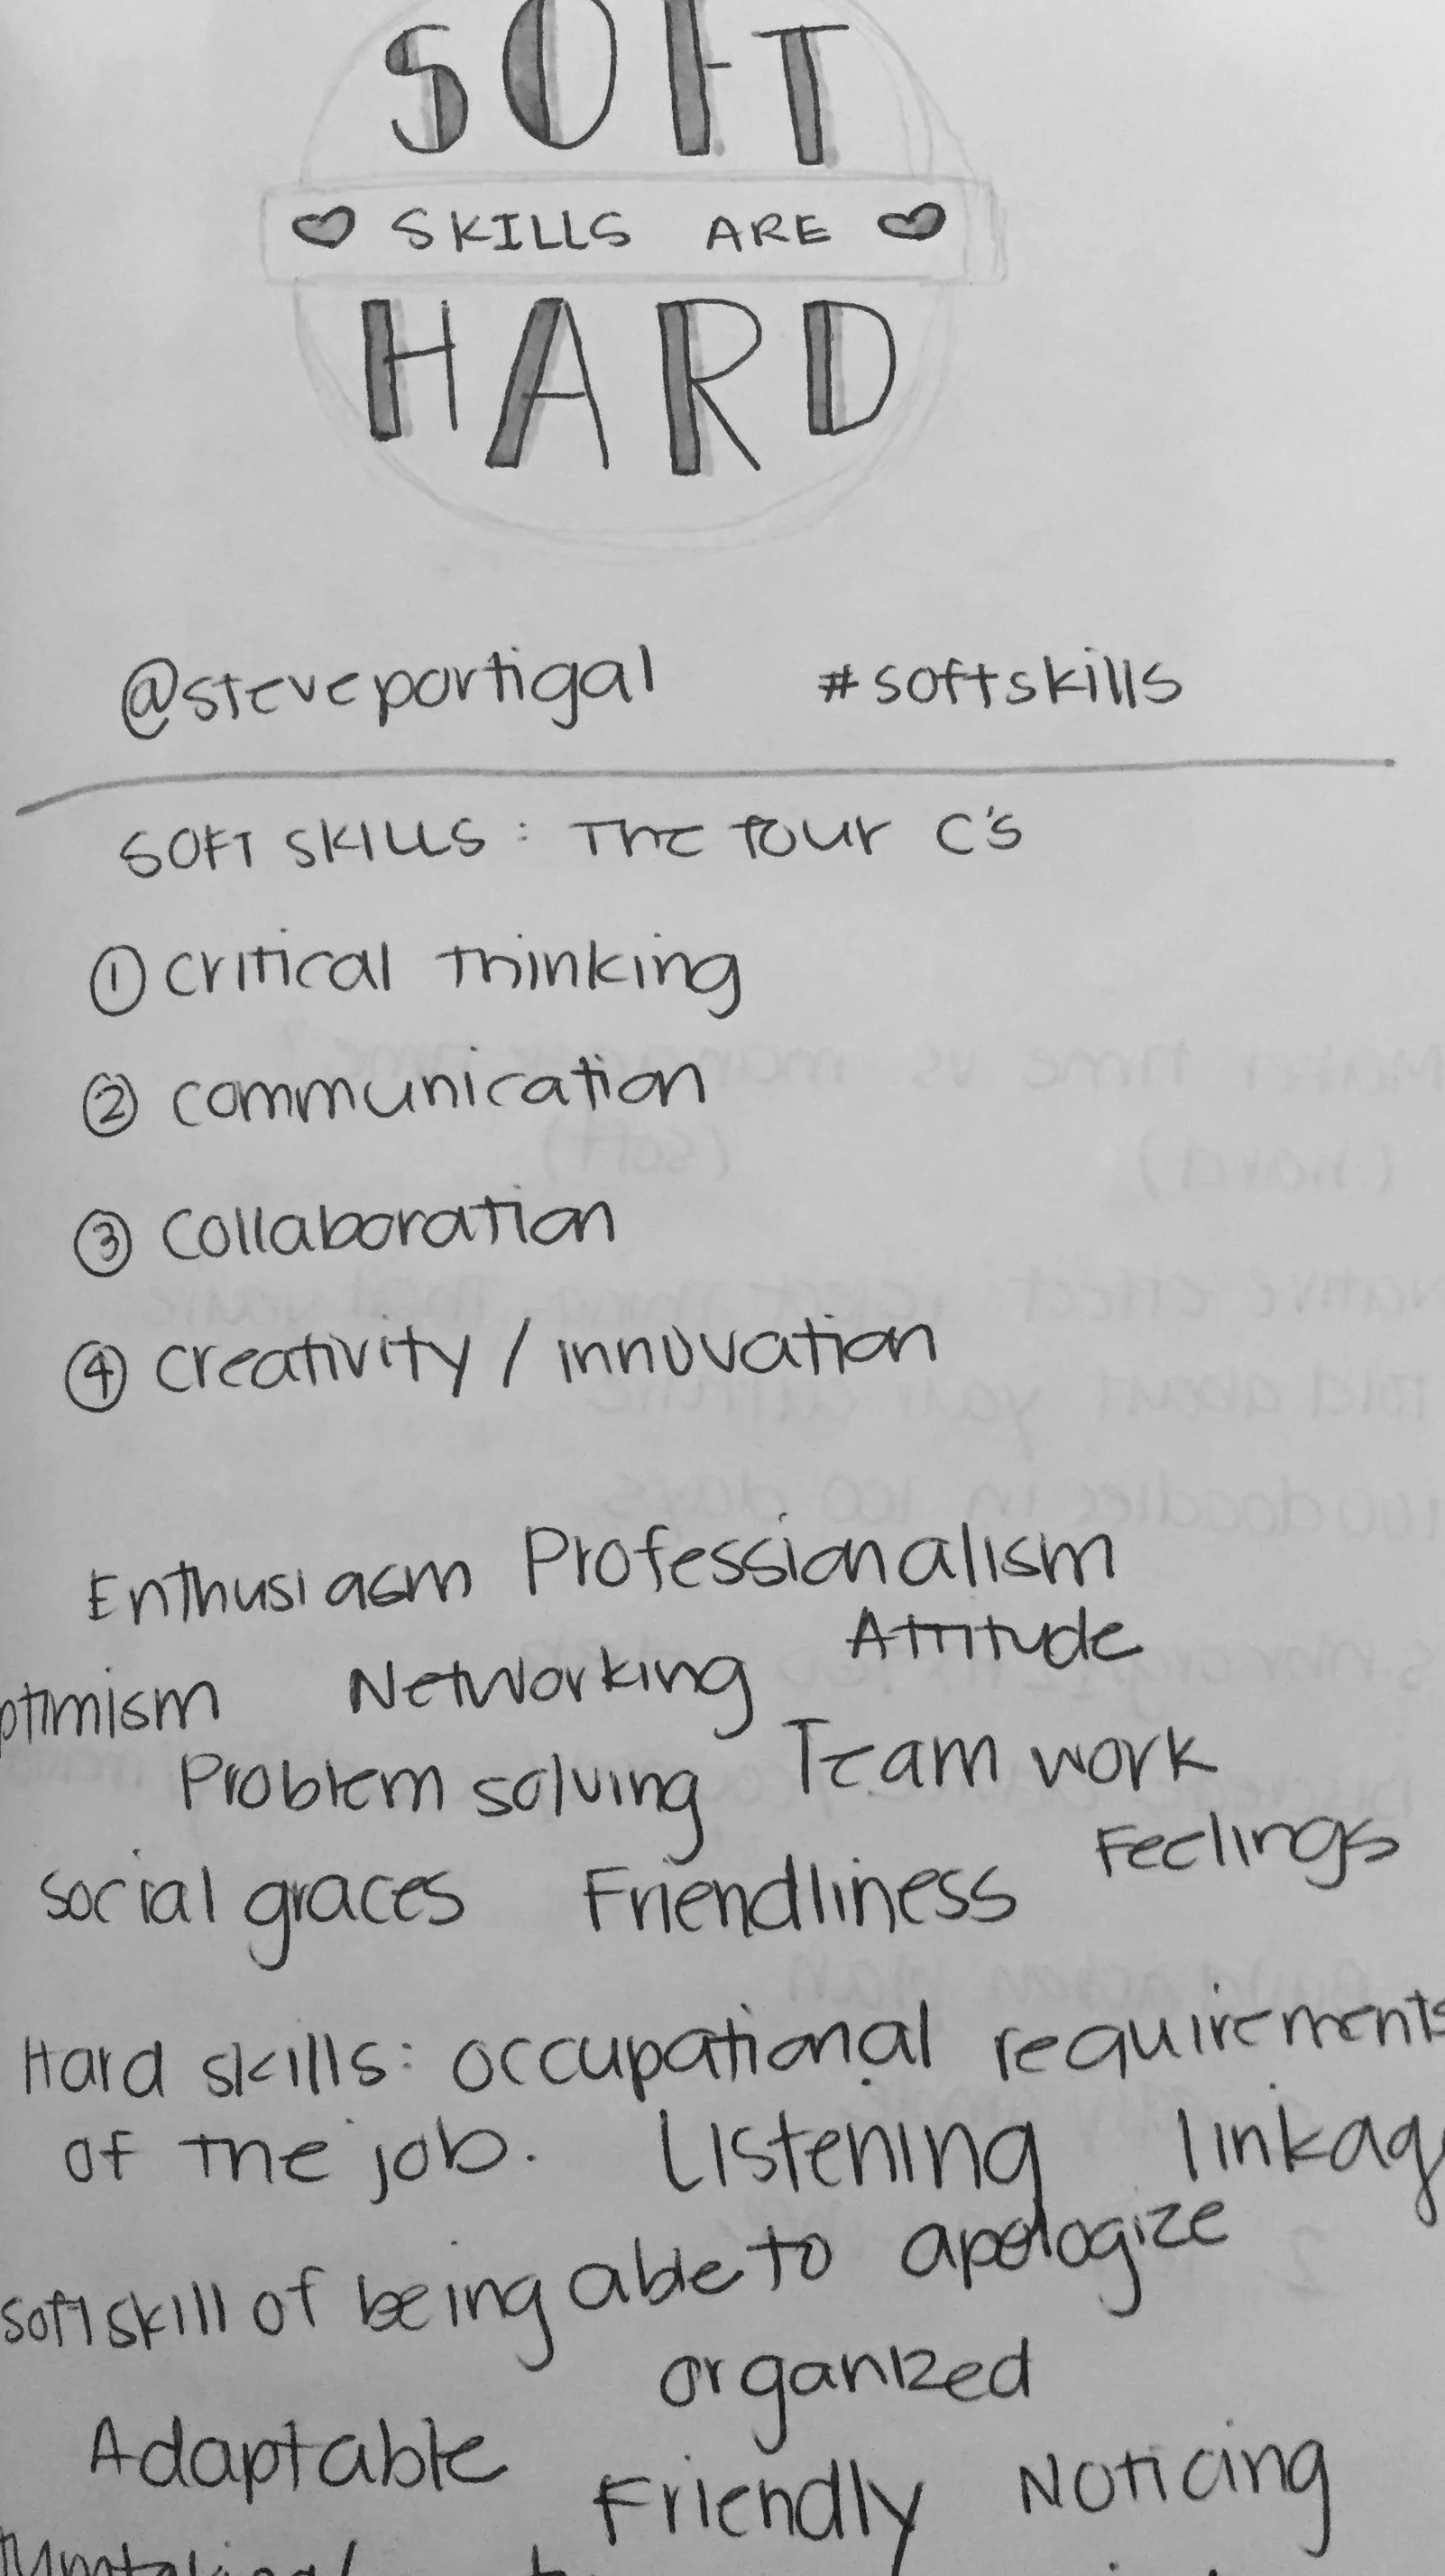 SOFT
SKILLS ARE
HARD
@steveportigal #softskills
SOFT SKILLS: The Four C's
① critical thinking
② communication
③ collaboration
④ creativity / innovation
Enthusiasm Professionalism
Attitude
ptimism Networking
Problem solving Team work
Feelings
social graces Friendliness
Hard skills: occupational requirements
of the job. Listening linkag
soft skill of being able to apologize
organized
Adaptable
Friendly Noticing